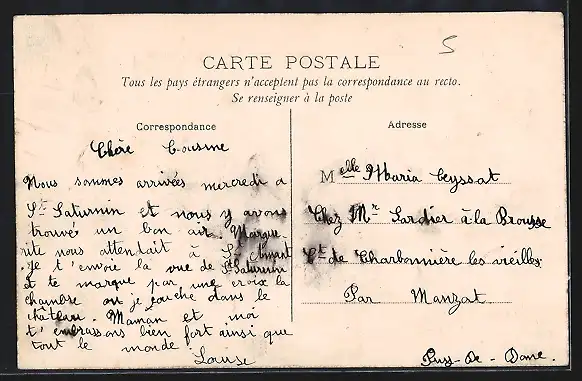 5
CARTE POSTALE
Tous les pays étrangers n'acceptent pas la correspondance au recto.
Se renseigner à la poste
Correspondance
Chère Cousine
Nous sommes arrivées mercredi a
St Saturnin et nous y avons
trouvée un bon air. Margue-
rite nous attendait à St Amant
je t'envoie la vue de St Saturnin
et te marque par une croix la
chambre ou je couche dans le
château. Maman et moi
t'embrassons bien fort ainsi que
tout le monde
Louise
Adresse
Melle Maria Ceyssat
Chez Mr Lardier à la Brousse
Ct de Charbonnière les vieilles
Par Manzat
Puy-De-Dome.